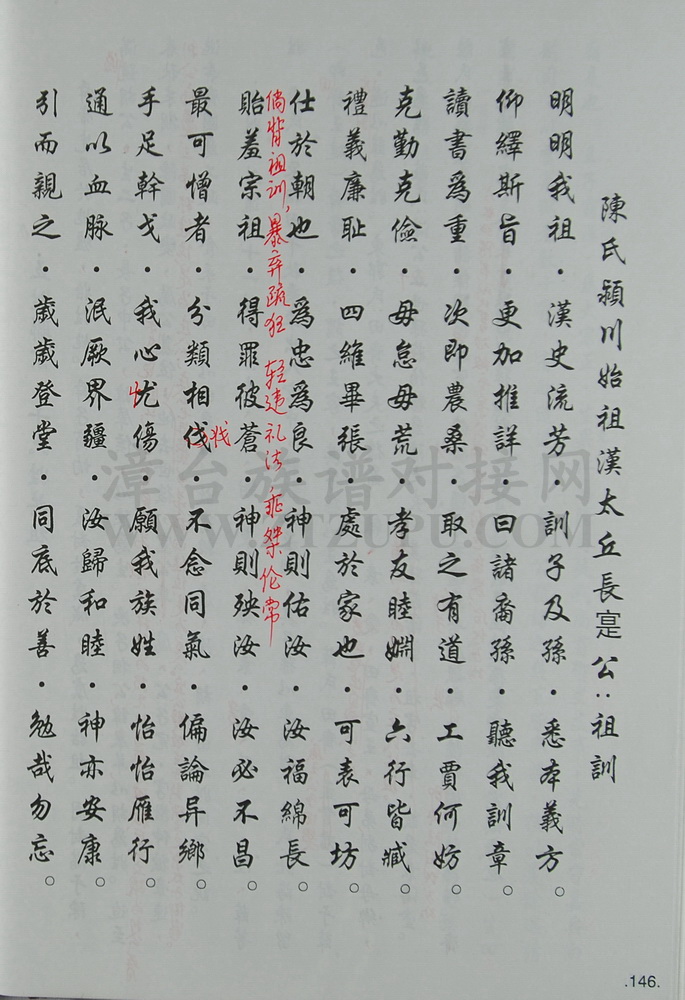 陳氏潁川始祖漢太丘長寔公：祖訓
明明我祖·漢史流芳·訓子及孫·悉本義方。
仰繹斯旨·更加推詳·曰諸裔孫·聽我訓章。
讀書為重·次即農桑·取之有道·工賈何妨。
克勤克儉·毋怠毋荒·孝友睦婣·六行皆臧。
禮義廉恥·四維畢張·處於家也·可表可坊。
仕於朝也·為忠為良·神則佑汝·汝福綿長。
倘背祖训，暴弃疏狂 轻违礼法，乖桀伦常
貽羞宗祖·得罪彼蒼·神則殃汝·汝必不昌。
最可憎者·分類相伐·不念同氣·偏論异鄉。
戕
手足幹戈·我心忧傷·願我族姓·怡怡雁行。
忄
通以血脉·泯厥界疆·汝歸和睦·神亦安康。
引而親之·歲歲登堂·同底於善·勉哉勿忘。
漳台族谱对接网
WWW.ZTZUPU.COM
.146.